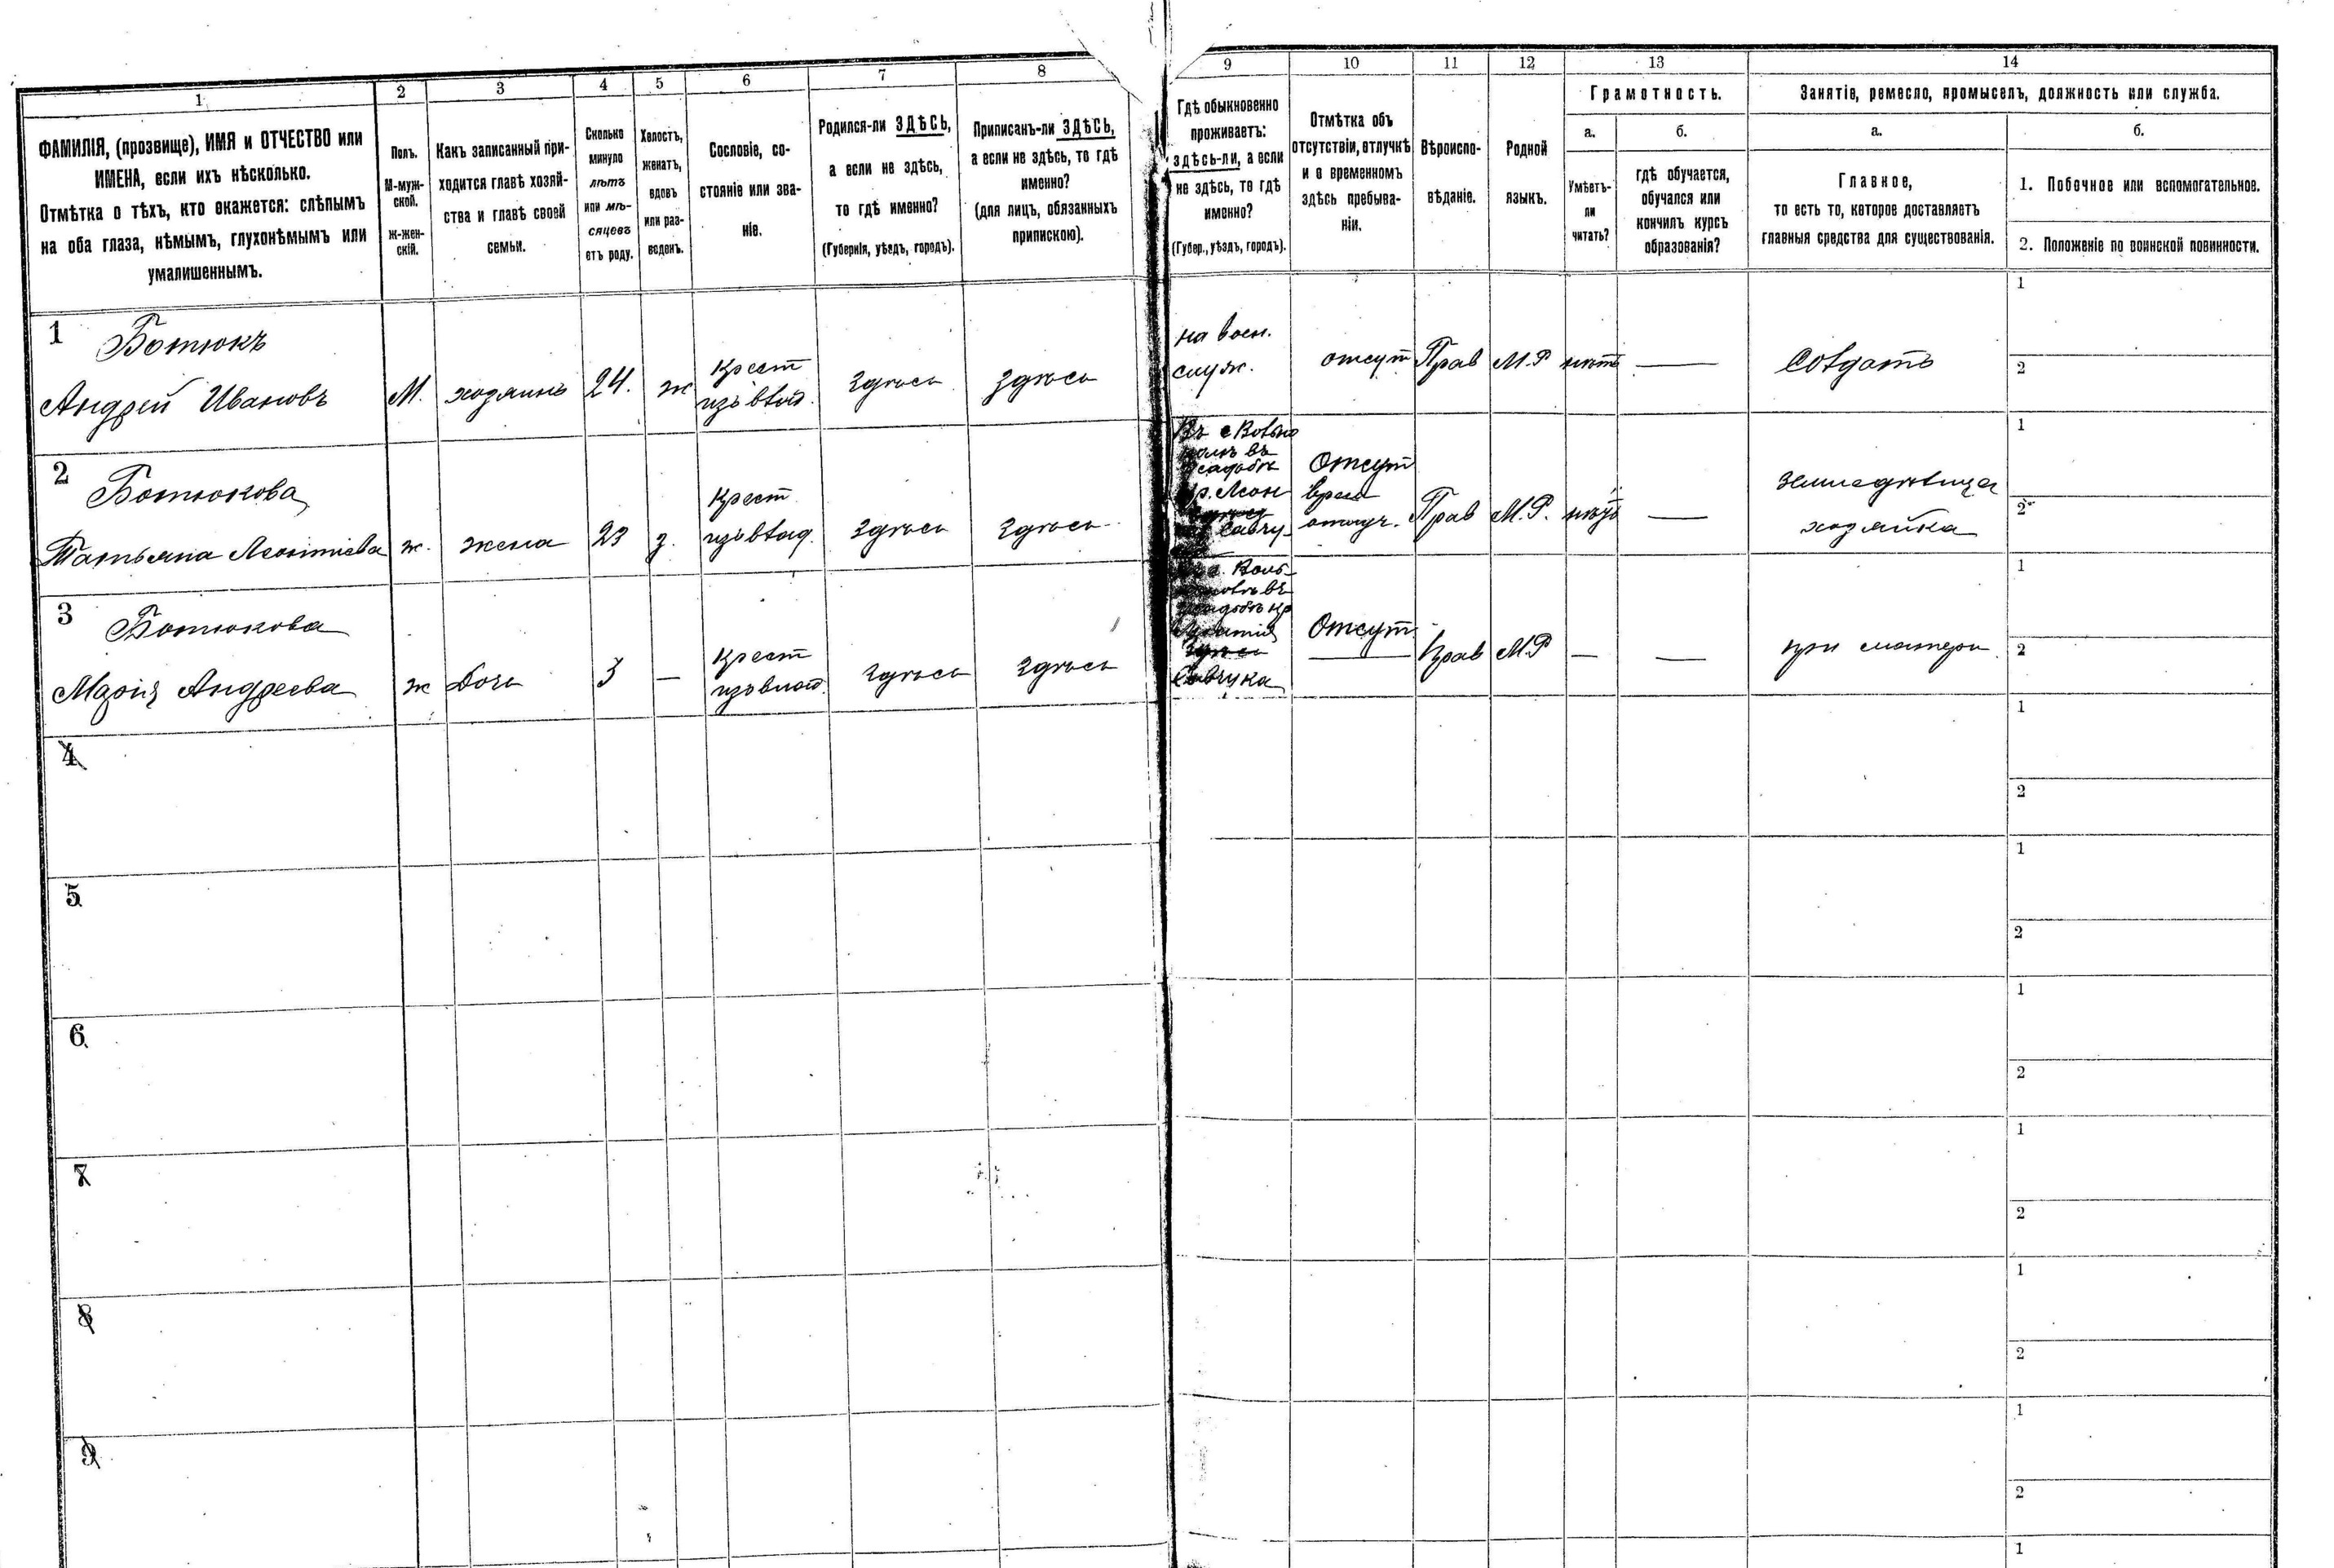 1 2 3 4 5 6 7 8 9 10 11 12 13 14
ФАМИЛІЯ, (прозвище), ИМЯ и ОТЧЕСТВО или
ИМЕНА, если ихъ нѣсколько.
Отмѣтка о тѣхъ, кто окажется: слѣпымъ
на оба глаза, нѣмымъ, глухонѣмымъ или
умалишеннымъ.
Полъ.
М-муж-
ской.
Ж-жен-
скій.
Какъ записанный при-
ходится главѣ хозяй-
ства и главѣ своей
семьи.
Сколько
минуло
лѣтъ
или мѣ-
сяцевъ
отъ роду.
Холостъ,
женатъ,
вдовъ
или раз-
веденъ.
Сословіе, со-
стояніе или зва-
ніе.
Родился-ли ЗДѢСЬ,
а если не здѣсь,
то гдѣ именно?
(Губернія, уѣздъ, городъ).
Приписанъ-ли ЗДѢСЬ,
а если не здѣсь, то гдѣ
именно?
(для лицъ, обязанныхъ
припискою).
Гдѣ обыкновенно
проживаетъ:
здѣсь-ли, а если
не здѣсь, то гдѣ
именно?
(Губер., уѣздъ, городъ).
Отмѣтка объ
отсутствіи, отлучкѣ
и о временномъ
здѣсь пребыва-
ніи.
Вѣроиспо-
вѣданіе.
Родной
языкъ.
Грамотность.
а.
Умѣетъ-
ли
читать?
б.
гдѣ обучается,
обучался или
кончилъ курсъ
образованія?
Занятіе, ремесло, промыселъ, должность или служба.
а.
Главное,
то есть то, которое доставляетъ
главныя средства для существованія.
б.
1. Побочное или вспомогательное.
2. Положеніе по воинской повинности.
1
Ботюкъ
Андрей Ивановъ
М.
хозяинъ
24.
ж
крест
изъ влад.
здѣсь
здѣсь
на воен.
служ.
отсут
Прав
М.Р
нѣтъ
—
Солдатъ
1
2
2
Ботюкова
Татьяна Леонтіева
ж.
жена
23
з.
крест
изъ влад.
здѣсь
здѣсь
Въ с Вольно
въ
усадьбѣ
кр. Леон
Савчу-
Отсут
врем
отлуч.
Прав
М.Р.
нѣтъ
—
земледѣлица
хозяйка
1
2
3
Ботюкова
Марія Андреева
ж
дочь
3
—
крест
изъ влад.
здѣсь
здѣсь
Воль-
въ
усадьбѣ кр
здѣсь
Савчука
Отсут
Прав
М.Р
—
—
при матери
1
2
4
1
2
5
1
2
6
1
2
7
1
2
8
1
2
9
1
2
1